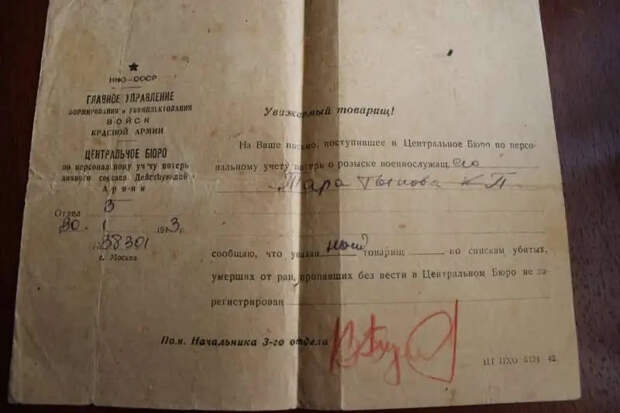 НКО—СССР
ГЛАВНОЕ УПРАВЛЕНИЕ
ФОРМИРОВАНИЯ и УКОМПЛЕКТОВАНИЯ
ВОЙСК
КРАСНОЙ АРМИИ
ЦЕНТРАЛЬНОЕ БЮРО
по персональному учету потерь
личного состава Действующей
Армии
Отдел 3
30. 1 1943 г.
38301
г. Москва
Уважаемый товарищ!
На Ваше письмо, поступившее в Центральное Бюро по персо-
нальному учету потерь о розыске военнослужащ его
К. П.
сообщаю, что указан ный товарищ по спискам убитых,
умерших от ран, пропавших без вести в Центральном Бюро не за-
регистрирован
Пом. Начальника 3-го отдела
42.